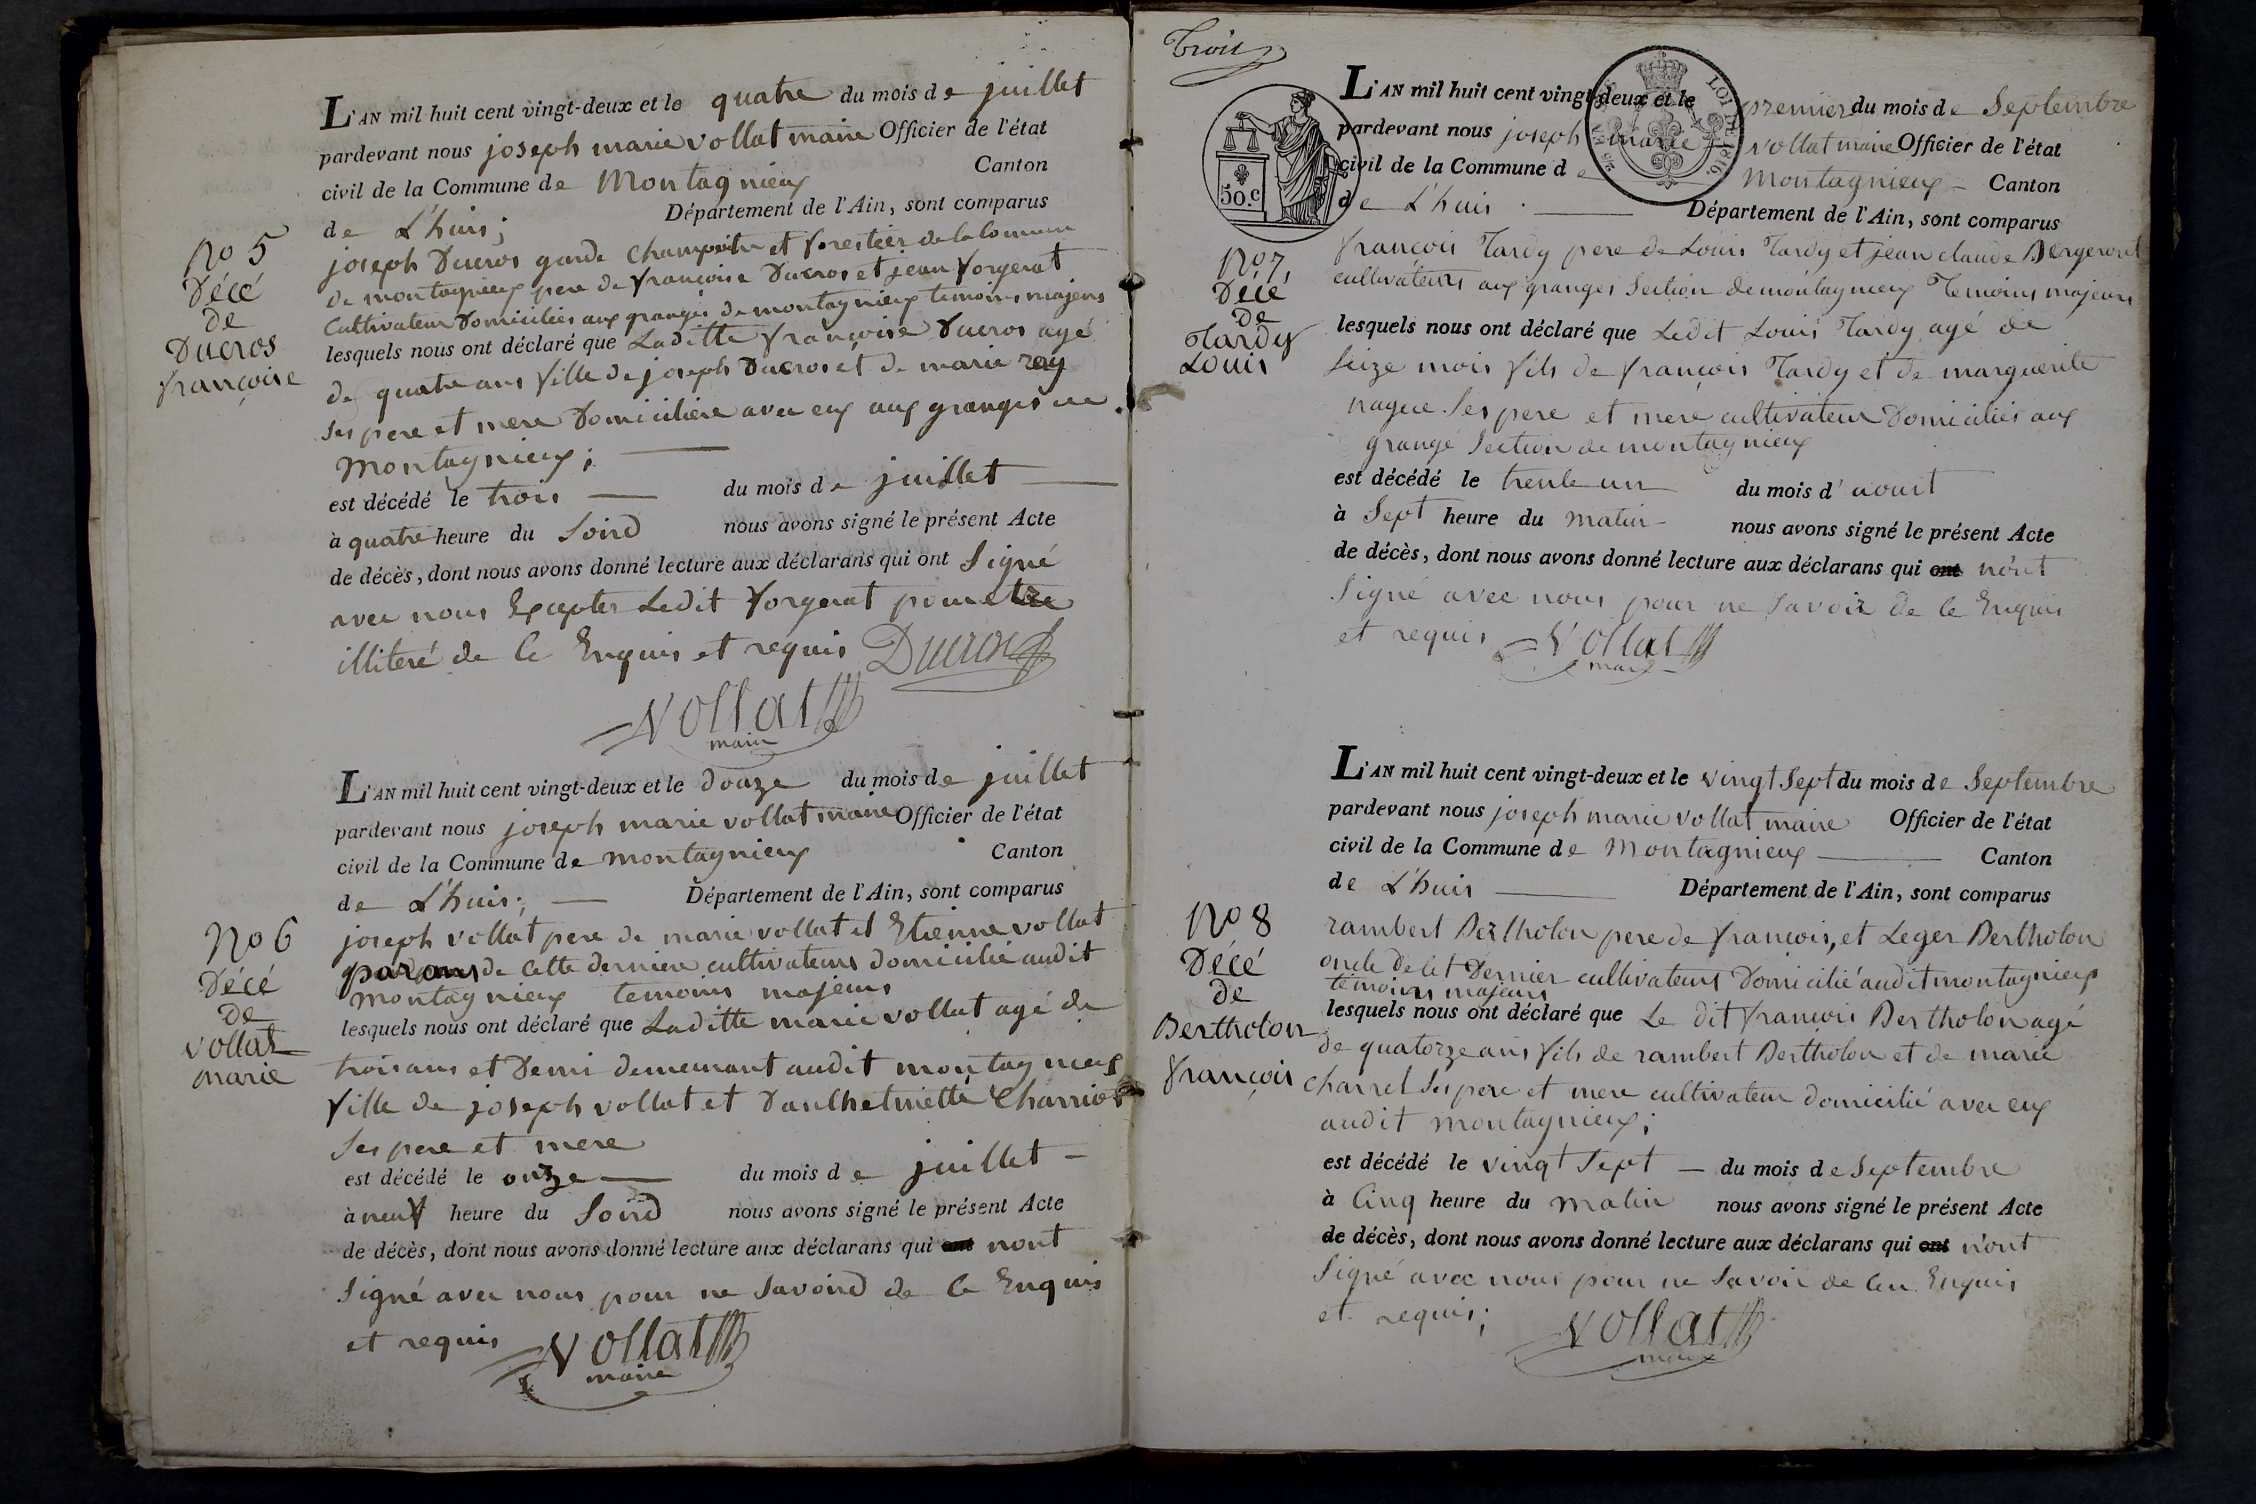 L'AN mil huit cent vingt-deux et le quatre du mois de juillet
pardevant nous joseph marie vollat maire Officier de l'état
civil de la Commune de Montagnieux Canton
de L'huis; Département de l'Ain, sont comparus
No 5
Décé
de
Ducros
françoise
joseph Ducros garde champetre et forestier de la Commune
de montagnieux pere de françoise Ducros et jean forgerat
Cultivateur Domiciliés aux granges de montagnieux temoins majeurs
lesquels nous ont déclaré que Laditte françoise Ducros agé
de quatre ans fille de joseph Ducros et de marie rey
Ses pere et mere Domiciliere avec eux aux granges
Montagnieux;
est décédé le trois du mois de juillet
à quatre heure du Soird nous avons signé le présent Acte
de décès, dont nous avons donné lecture aux déclarans qui ont Signé
avec nous Excepter Ledit forgerat pour etre
illiteré de Ce Enquis et requis Ducros
Vollat
maire
L'AN mil huit cent vingt-deux et le douze du mois de juillet
pardevant nous joseph marie vollat maire Officier de l'état
civil de la Commune de montagnieux Canton
de L'huis; Département de l'Ain, sont comparus
No 6
Décé
de
vollat
marie
joseph vollat pere de marie vollat et Etienne vollat
de cette derniere cultivateurs domicilié audit
montagnieux temoins majeurs
lesquels nous ont déclaré que Laditte marie vollat agé de
trois ans et Demi demeurant audit montagnieux
fille de joseph vollat et Charriot
Ses pere et mere
est décédé le onze du mois de juillet
à neuf heure du Soird nous avons signé le présent Acte
de décès, dont nous avons donné lecture aux déclarans qui ont nont
Signé avec nous pour ne Savoird de Ce Enquis
et requis Vollat
maire
Trois
50.c
LOI DE 1816.
L'AN mil huit cent vingt-deux et le premier du mois de Septembre
pardevant nous joseph marie vollat maire Officier de l'état
civil de la Commune de Montagnieux Canton
de L'huis Département de l'Ain, sont comparus
No 7
Décé
de
Tardy
Louis
françois Tardy pere de Louis Tardy et jean claude Bergeront
cultivateurs aux granges Section de montagnieux Temoins majeurs
lesquels nous ont déclaré que Ledit Louis Tardy agé de
Seize mois fils de françois Tardy et de marguerite
Ses pere et mere cultivateur Domiciliés aux
grange Section de montagnieux
est décédé le trente un du mois d'aoust
à Sept heure du matin nous avons signé le présent Acte
de décès, dont nous avons donné lecture aux déclarans qui ont n'ont
Signé avec nous pour ne Savoir de Ce Enquis
et requis Vollat
maire
L'AN mil huit cent vingt-deux et le vingt Sept du mois de Septembre
pardevant nous joseph marie vollat maire Officier de l'état
civil de la Commune de Montagnieux Canton
de L'huis Département de l'Ain, sont comparus
No 8
Décé
de
Bertholon
françois
rambert Bertholon pere de françois, et Leger Bertholon
oncle de Cet Dernier cultivateurs Domicilié audit montagnieux
temoins majeurs
lesquels nous ont déclaré que Le dit françois Bertholon agé
de quatorze ans fils de rambert Bertholon et de marie
charrel Ses pere et mere cultivateur domicilié avec eux
audit montagnieux;
est décédé le vingt Sept du mois de Septembre
à Cinq heure du matin nous avons signé le présent Acte
de décès, dont nous avons donné lecture aux déclarans qui ont n'ont
Signé avec nous pour ne Savoir de Enquis
et requis; Vollat
maire